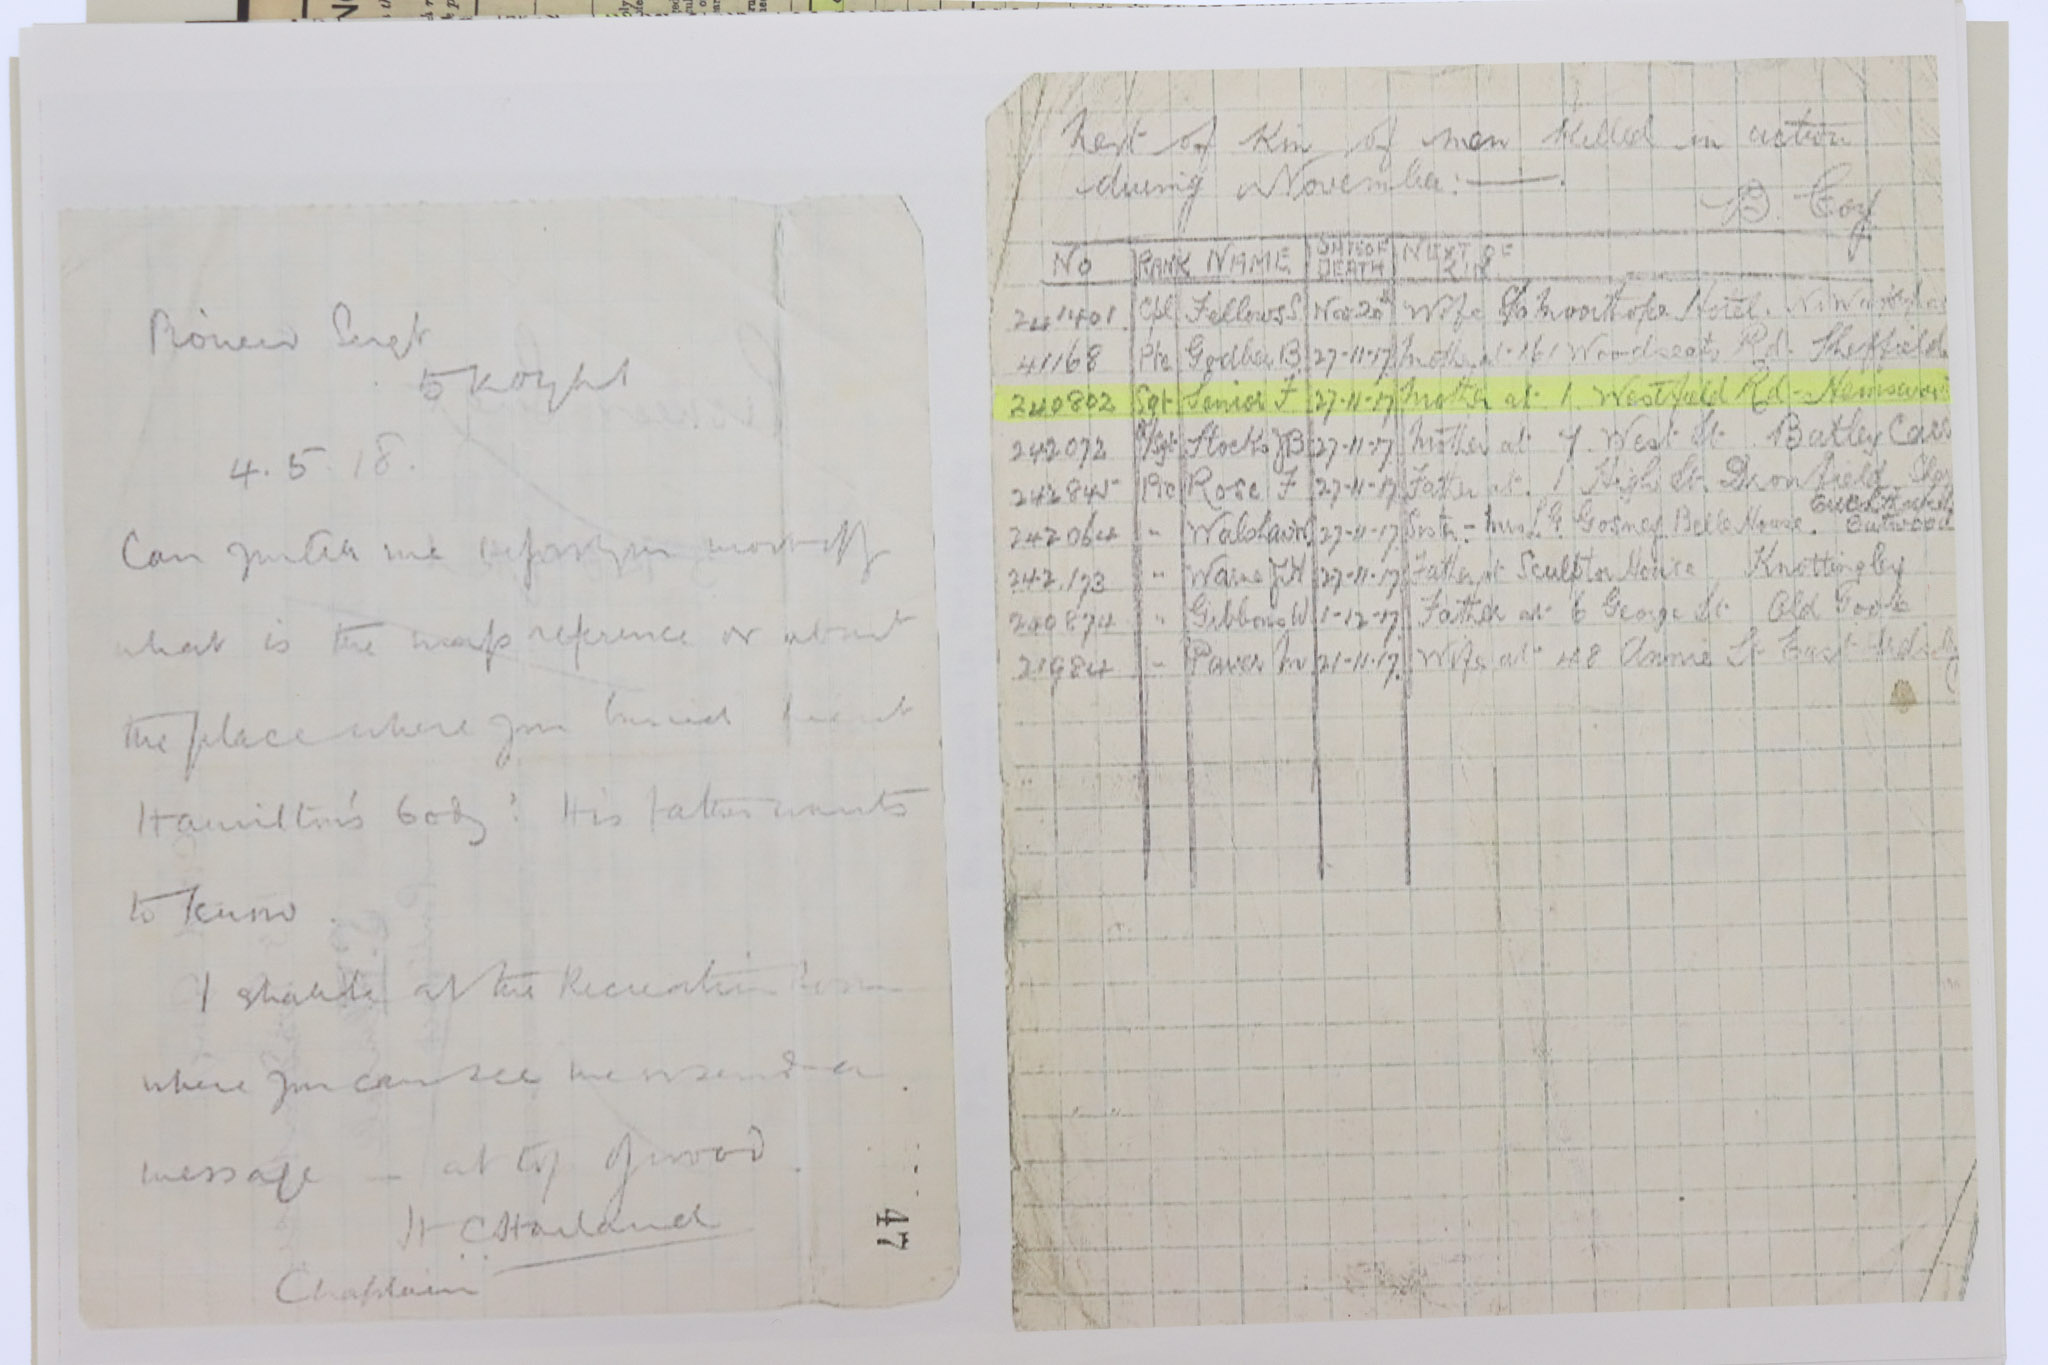 Pioneer Sergt
5 Koyli
4.5.18.
Can you tell me before you move off
what is the map reference or about
the place where you buried Lieut
Hamilton's body? His father wants
to know.
I shall be at the Recreation Room
where you can see me or send a
message — at top of wood.
H C Harland
Chaplain
47
Next of Kin of men killed in action
during November:—.
B. Coy
No RANK NAME DATE OF DEATH NEXT OF KIN
241401. Cpl Fellows S Nov 20th Wife c/o Moorthorpe Hotel.
41168 Pte Godber B 27-11-17 Mother at 161 Woodseats Rd. Sheffield
240802 Sgt Senior F 27-11-17 Mother at 1 Westfield Rd - Hemswor
242072 Sgt Stocks JB 27-11-17 Mother at 7. West St. Batley Carr
242845 Pte Rose F 27-11-17 Father at. 1 High St. Dronfield.
242064 " Walshaw 27-11-17 Sister - Mrs L G Gosney Belle House. Outwood
242173 " Warne J H 27-11-17 Father at Sculptor House Knottingley
240874 " Gibbons W 1-12-17 Father at 6 George St Old Goole
21984 " Paver M 21-11-17. Wife at 48 Annie St East